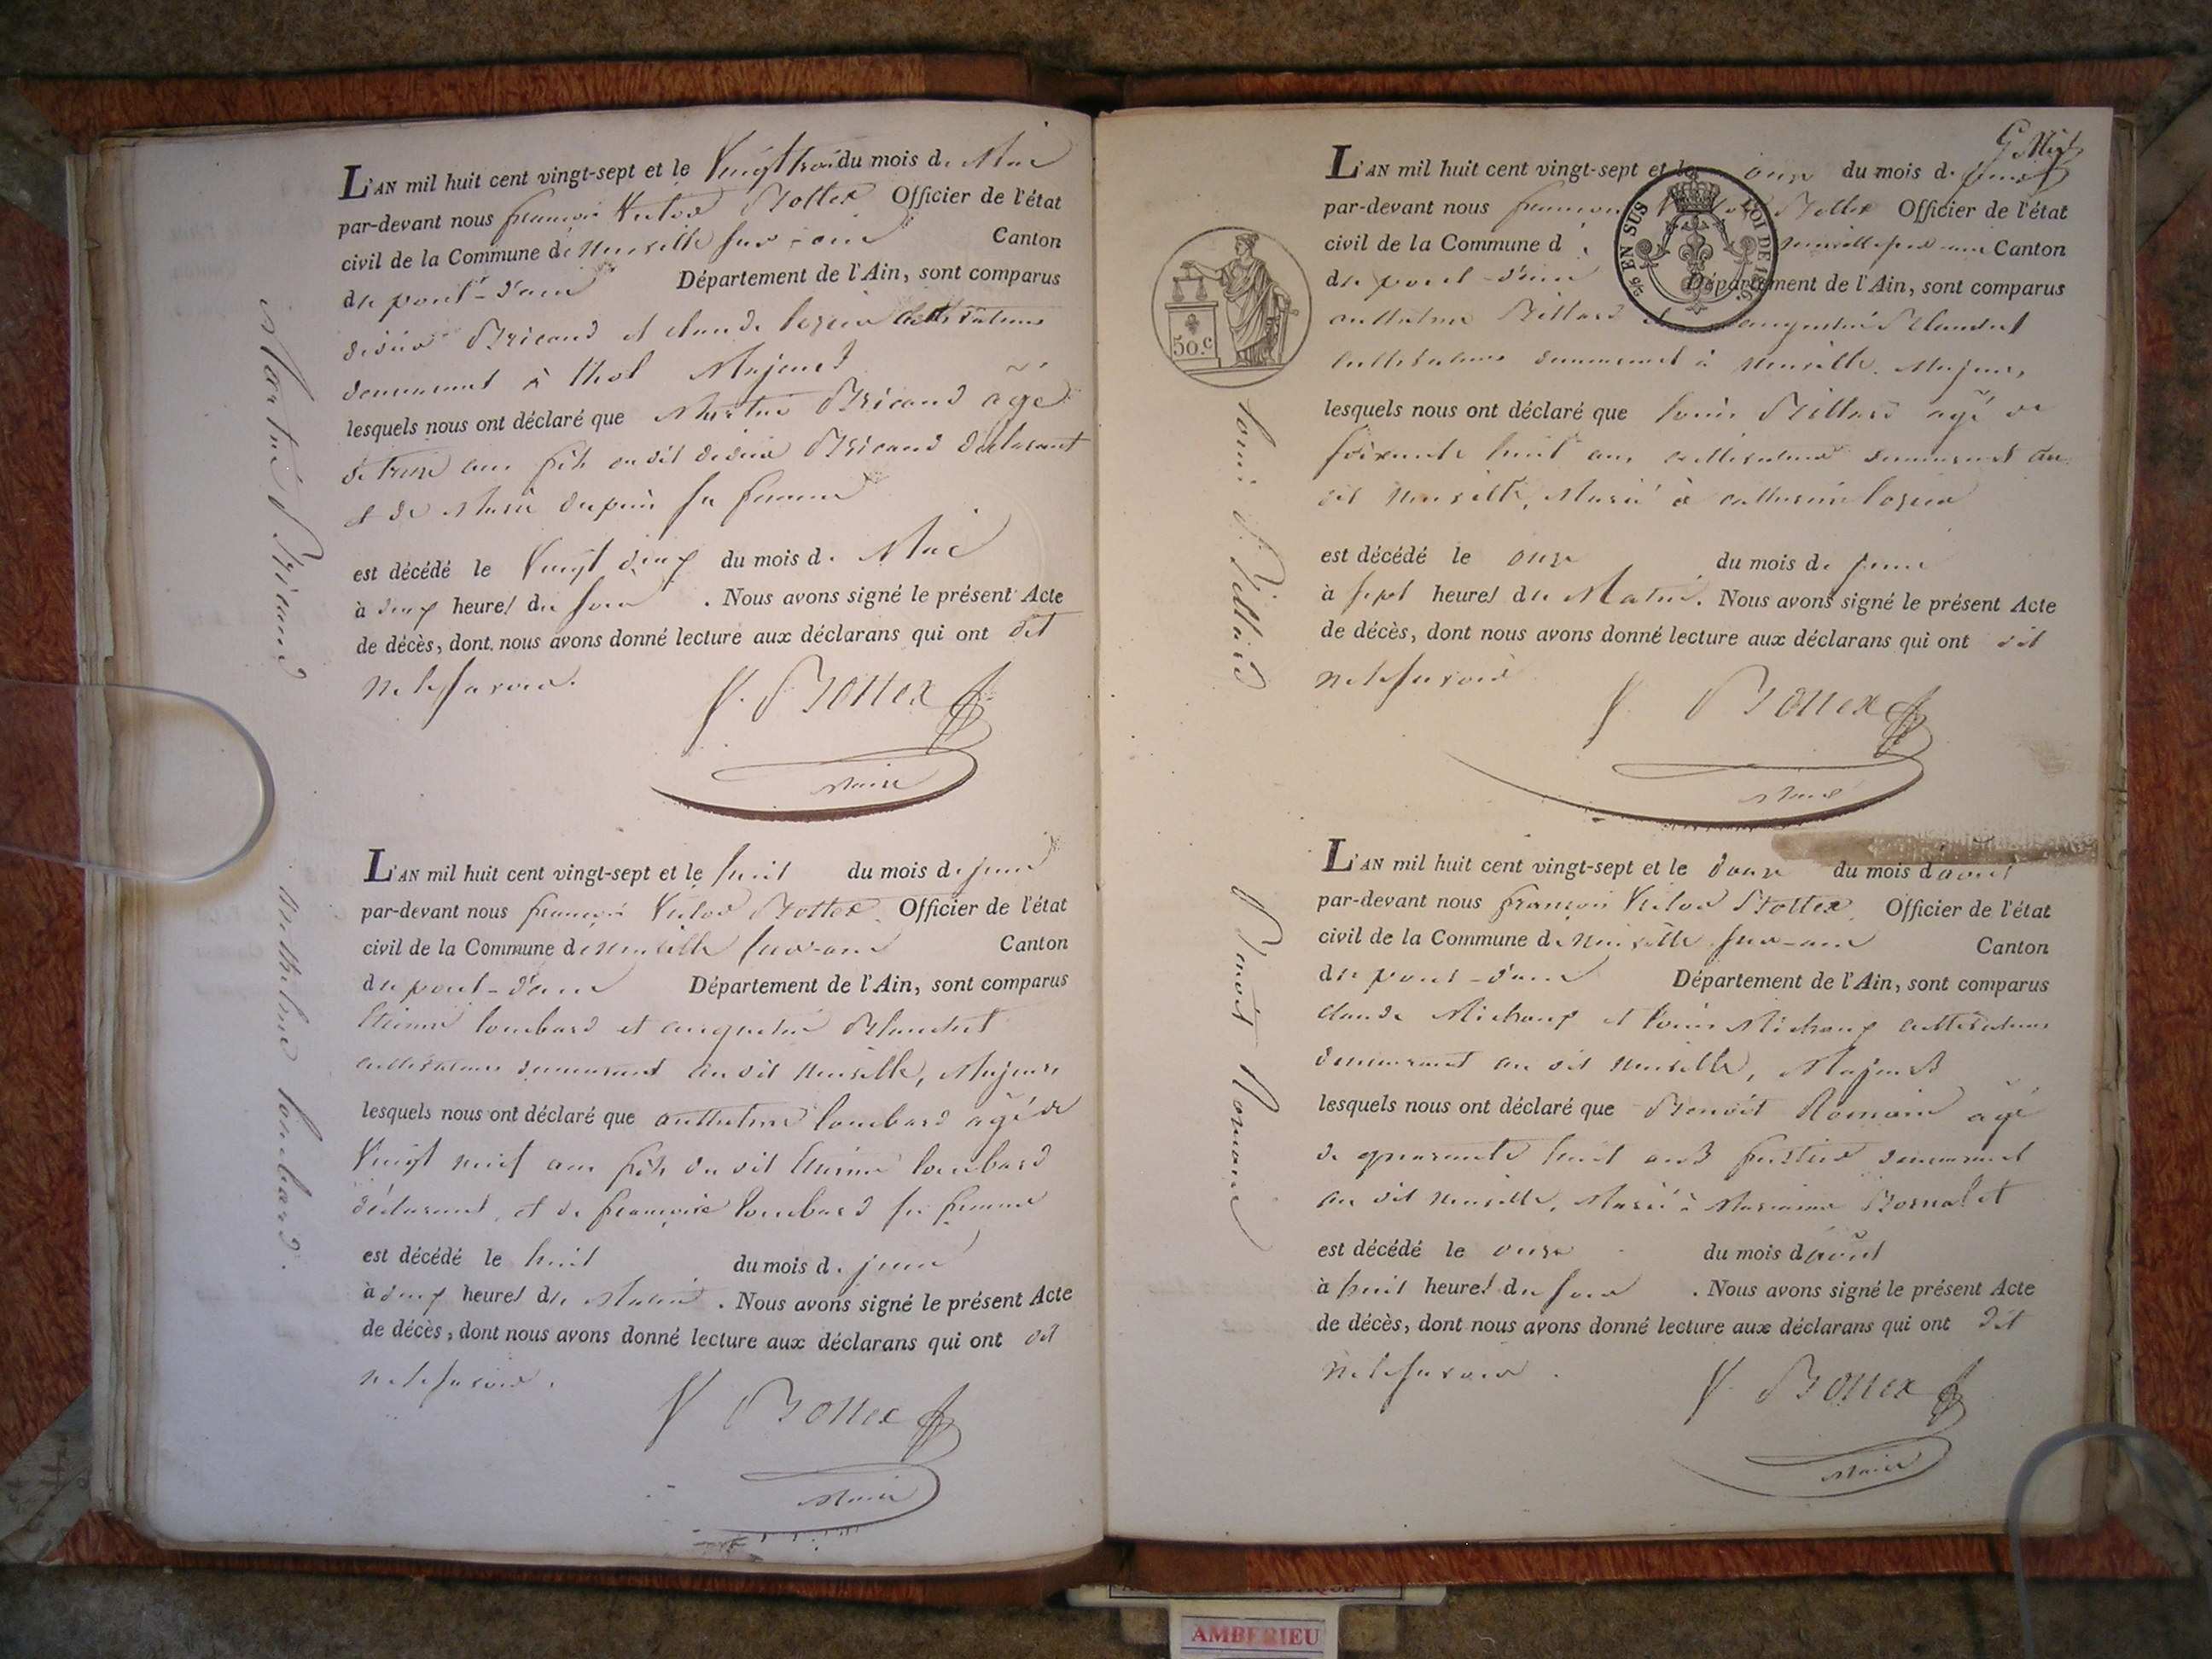 L'AN mil huit cent vingt-sept et le Vingt trois du mois de Mai
par-devant nous françois Victor Bottex Officier de l'état
civil de la Commune de neuville sur-ain Canton
de pont-d'ain Département de l'Ain, sont comparus
Bricand et claude cultivateurs
demeurant à thol Majeurs
lesquels nous ont déclaré que Martin Bricand âgé
de treize ans fils dudit Bricand déclarant
et de Marie dupuis sa femme
est décédé le Vingt deux du mois de Mai
à deux heures du soir . Nous avons signé le présent Acte
de décès, dont nous avons donné lecture aux déclarans qui ont dit
ne le savoir.
V. Bottex
Maire
Martin Bricand
L'AN mil huit cent vingt-sept et le huit du mois de juin
par-devant nous françois Victor Bottex Officier de l'état
civil de la Commune de neuville sur-ain Canton
de pont-d'ain Département de l'Ain, sont comparus
Etienne lombard et augustin Blanchet
cultivateurs demeurant au dit neuville, Majeurs
lesquels nous ont déclaré que anthelme lombard âgé de
Vingt neuf ans fils du dit Etienne lombard
déclarant, et de françoise lombard sa femme
est décédé le huit du mois de juin
à deux heures du Matin . Nous avons signé le présent Acte
de décès, dont nous avons donné lecture aux déclarans qui ont dit
ne le savoir.
V Bottex
Maire
anthelme lombard.
L'AN mil huit cent vingt-sept et le onze du mois de juin
par-devant nous françois Victor Bottex Officier de l'état
civil de la Commune de neuville sur-ain Canton
de pont-d'ain Département de l'Ain, sont comparus
anthelme Billard et augustin Blanchet
cultivateurs demeurant à neuville. Majeurs
lesquels nous ont déclaré que louis Billard âgé de
soixante huit ans, cultivateur demeurant au
dit neuville, Marié à catherine
est décédé le onze du mois de juin
à sept heures du Matin. Nous avons signé le présent Acte
de décès, dont nous avons donné lecture aux déclarans qui ont dit
ne le savoir
V Bottex
Maire
50.c
EN SUS
LOI DE 1816.
louis Billard
L'AN mil huit cent vingt-sept et le douze du mois d'aout
par-devant nous françois Victor Bottex Officier de l'état
civil de la Commune de neuville sur-ain Canton
de pont-d'ain Département de l'Ain, sont comparus
claude Michaux et louis Michaux cultivateurs
demeurant au dit neuville, Majeurs
lesquels nous ont déclaré que Benoit Romain âgé
de quarante huit ans demeurant
au dit neuville, Marié à Marianne Bornalet
est décédé le onze du mois d'aout
à huit heures du soir . Nous avons signé le présent Acte
de décès, dont nous avons donné lecture aux déclarans qui ont dit
ne le savoir .
V. Bottex
Maire
Benoit Romain
AMBERIEU